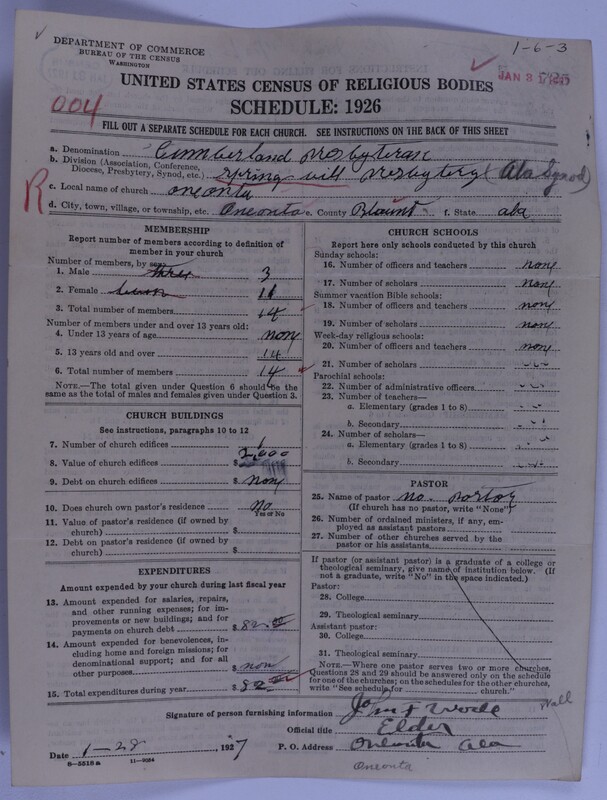 DEPARTMENT OF COMMERCE
BUREAU OF THE CENSUS
WASHINGTON
1-6-3
JAN 31
UNITED STATES CENSUS OF RELIGIOUS BODIES
004
SCHEDULE: 1926
FILL OUT A SEPARATE SCHEDULE FOR EACH CHURCH. SEE INSTRUCTIONS ON THE BACK OF THIS SHEET
a. Denomination Cumberland Presbyteran
b. Division (Association, Conference, Diocese, Presbytery, Synod, etc.) Spring vill Presbytery (Ala Synod)
R
c. Local name of church oneonta
d. City, town, village, or township, etc. Oneonta e. County Blount f. State ala
MEMBERSHIP
Report number of members according to definition of
member in your church
Number of members, by sex:
1. Male three 3
2. Female 11
3. Total number of members 14
Number of members under and over 13 years old:
4. Under 13 years of age non
5. 13 years old and over 14
6. Total number of members 14
NOTE.—The total given under Question 6 should be the
same as the total of males and females given under Question 3.
CHURCH BUILDINGS
See instructions, paragraphs 10 to 12
7. Number of church edifices 1
8. Value of church edifices $ 2,000
9. Debt on church edifices $ non
10. Does church own pastor's residence? No
Yes or No
11. Value of pastor's residence (if owned by
church) $
12. Debt on pastor's residence (if owned by
church) $
EXPENDITURES
Amount expended by your church during last fiscal year
13. Amount expended for salaries, repairs,
and other running expenses; for im-
provements or new buildings; and for
payments on church debt $ 82.00
14. Amount expended for benevolences, in-
cluding home and foreign missions; for
denominational support; and for all
other purposes $ non
15. Total expenditures during year $ 82.00
CHURCH SCHOOLS
Report here only schools conducted by this church
Sunday schools:
16. Number of officers and teachers non
17. Number of scholars non
Summer vacation Bible schools:
18. Number of officers and teachers non
19. Number of scholars non
Week-day religious schools:
20. Number of officers and teachers non
21. Number of scholars
Parochial schools:
22. Number of administrative officers
23. Number of teachers—
a. Elementary (grades 1 to 8)
b. Secondary
24. Number of scholars—
a. Elementary (grades 1 to 8)
b. Secondary
PASTOR
25. Name of pastor no. pastor
(If church has no pastor, write "None")
26. Number of ordained ministers, if any, em-
ployed as assistant pastors
27. Number of other churches served by the
pastor or his assistants
If pastor (or assistant pastor) is a graduate of a college or
theological seminary, give name of institution below. (If
not a graduate, write "No" in the space indicated.)
Pastor:
28. College
29. Theological seminary
Assistant pastor:
30. College
31. Theological seminary
NOTE.—Where one pastor serves two or more churches,
Questions 28 and 29 should be answered only on the schedule
for one of the churches; on the schedules for the other churches,
write "See schedule for church."
Signature of person furnishing information
Official title Elder
Date 1-28, 1927 P. O. Address Oneonta Ala
8-5518 a 11-9024
Oneonta